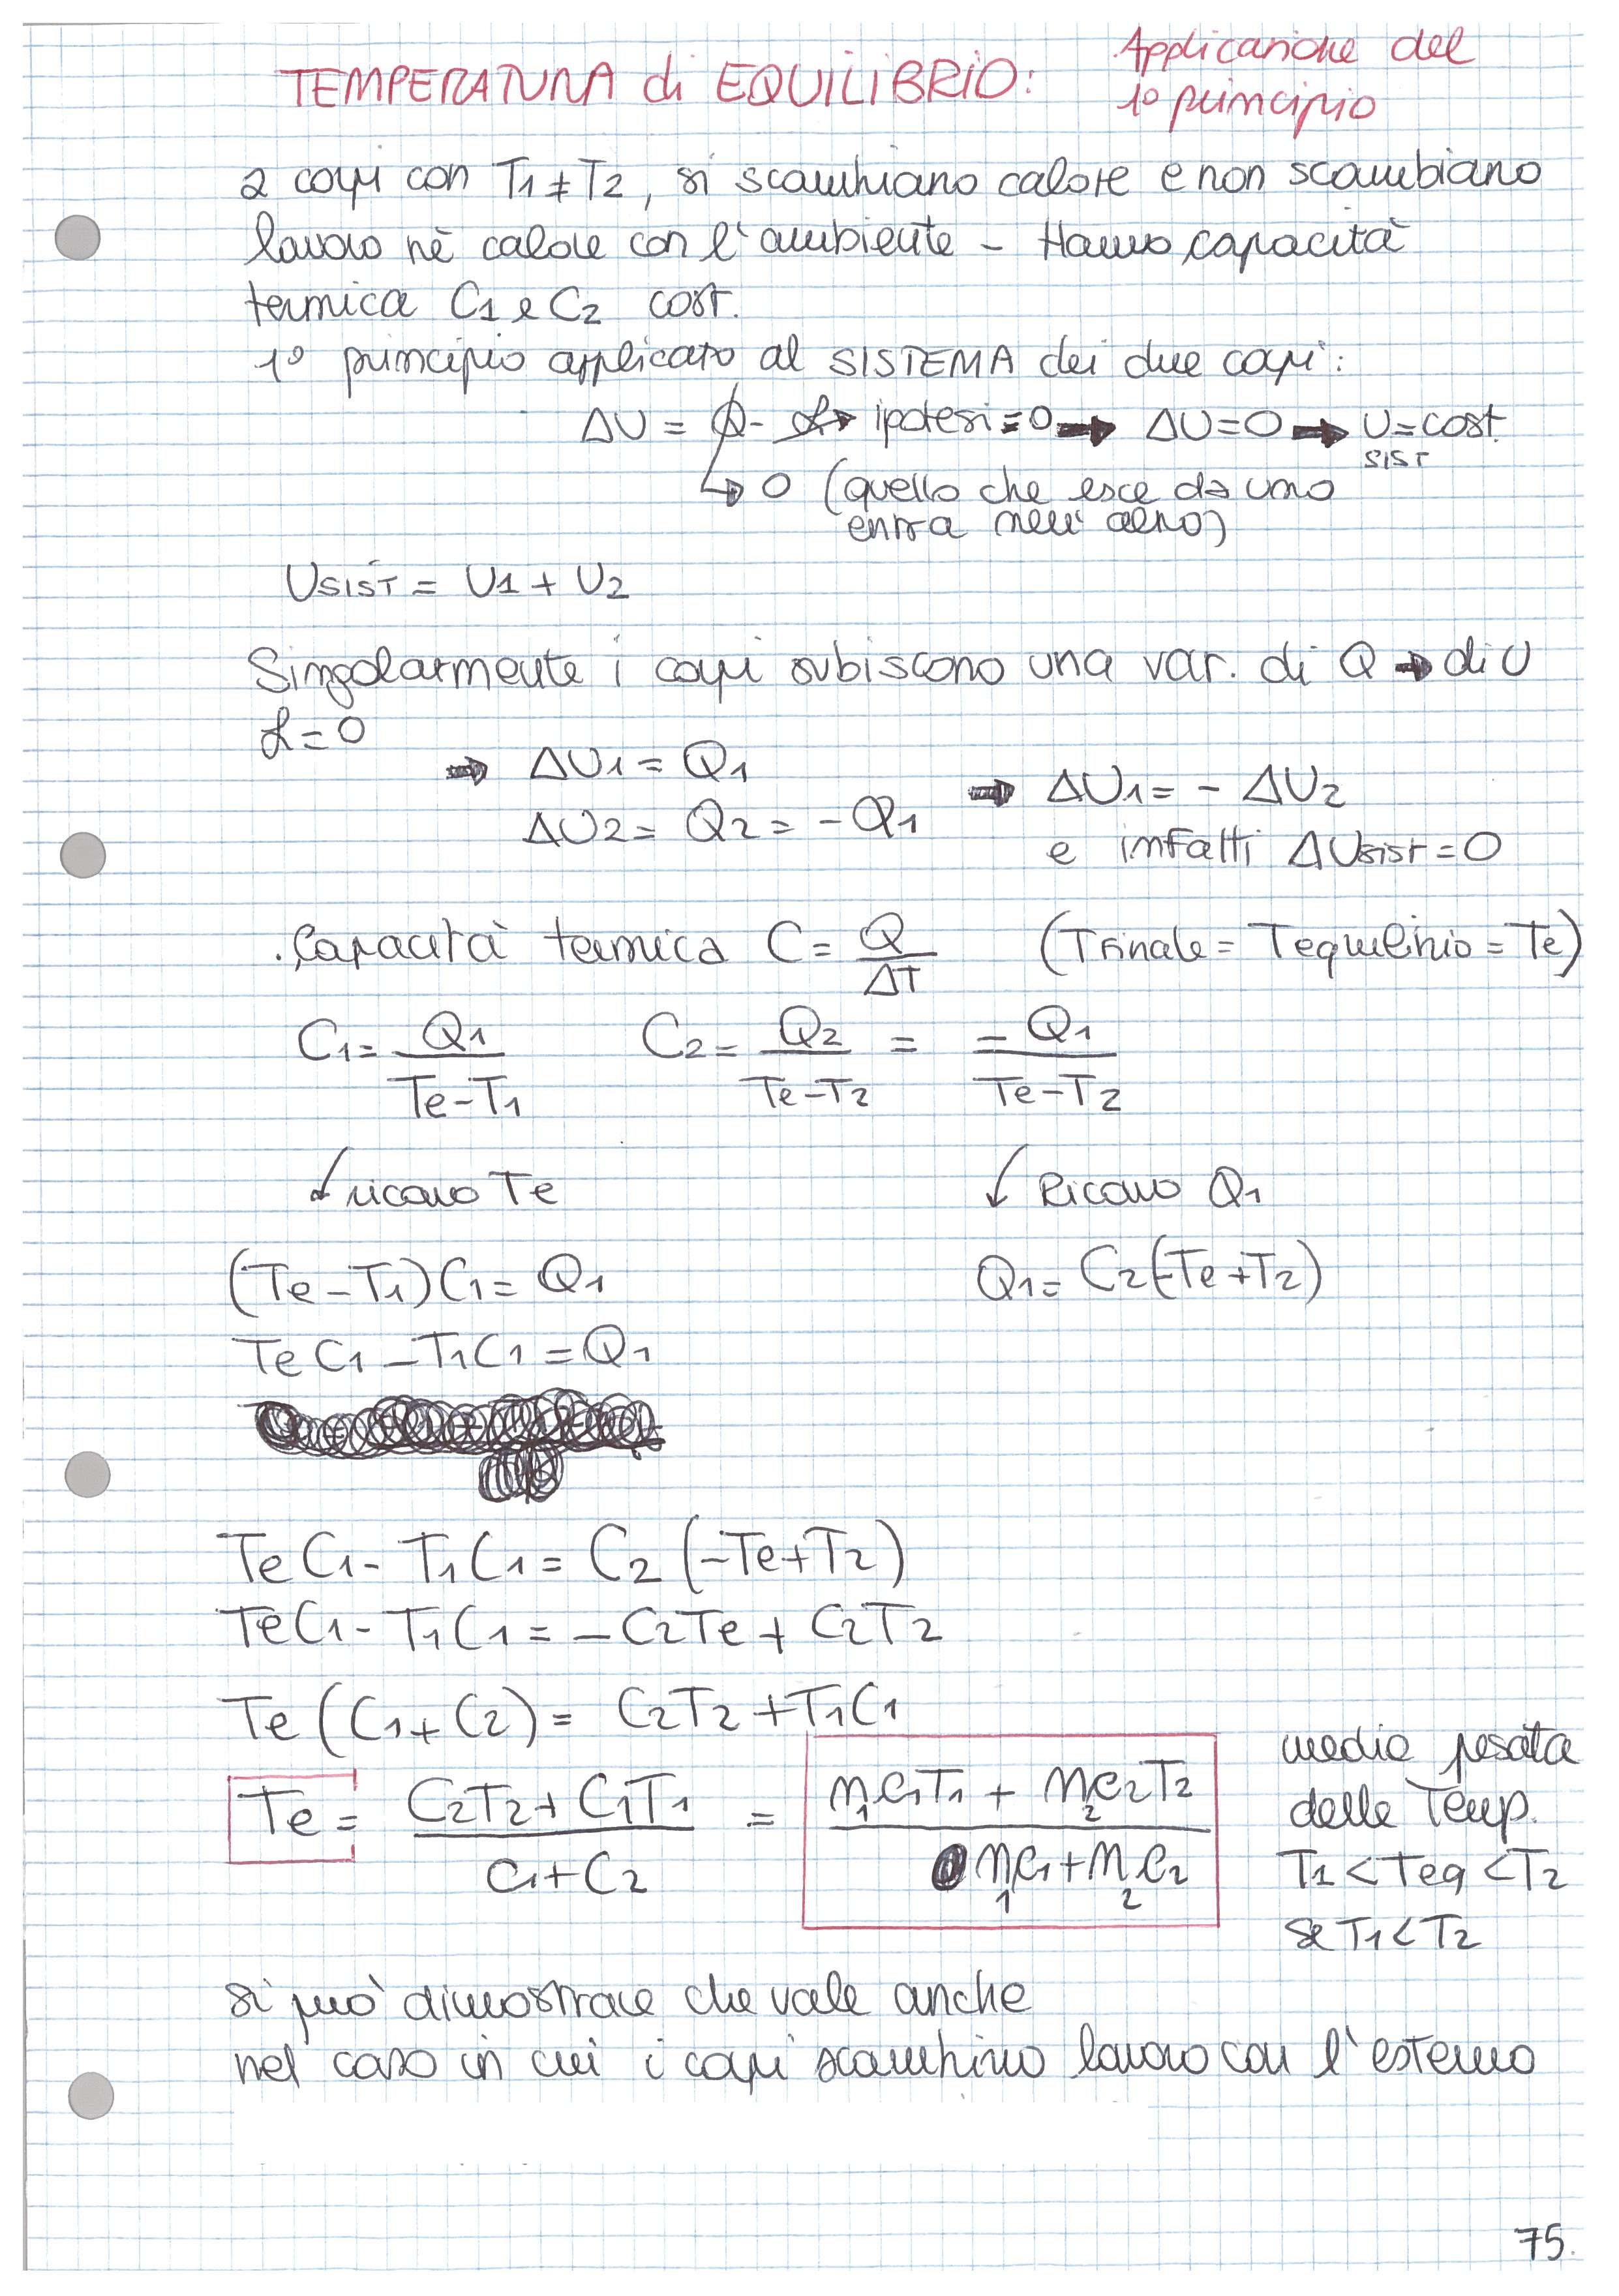 TEMPERATURA di EQUILIBRIO:
Applicazione del
1° principio
2 corpi con T1 ≠ T2, si scambiano calore e non scambiano
lavoro nè calore con l'ambiente - Hanno capacità
termica C1 e C2 cost.
1° principio applicato al SISTEMA dei due corpi:
ΔU = Q - L → ipotesi = 0 → ΔU = 0 → U = cost.
SIST
↳ 0 (quello che esce da uno
entra nell'altro)
USIST = U1 + U2
Singolarmente i corpi subiscono una var. di Q → di U
L = 0
→ ΔU1 = Q1
ΔU2 = Q2 = -Q1
→ ΔU1 = - ΔU2
e infatti ΔUsist = 0
. Capacità termica C = Q/ΔT (Tfinale = Tequilibrio = Te)
C1 = Q1/(Te-T1) C2 = Q2/(Te-T2) = -Q1/(Te-T2)
↙ ricavo Te ↙ Ricavo Q1
(Te-T1)C1 = Q1 Q1 = C2(-Te+T2)
TeC1 - T1C1 = Q1
TeC1 - T1C1 = C2 (-Te+T2)
TeC1 - T1C1 = -C2Te + C2T2
Te (C1+C2) = C2T2 + T1C1
Te = (C2T2 + C1T1)/(C1+C2) = (m1c1T1 + m2c2T2)/(m1c1 + m2c2)
media pesata
delle Temp.
T1 < Teq < T2
se T1 < T2
si può dimostrare che vale anche
nel caso in cui i corpi scambino lavoro con l'esterno
75.